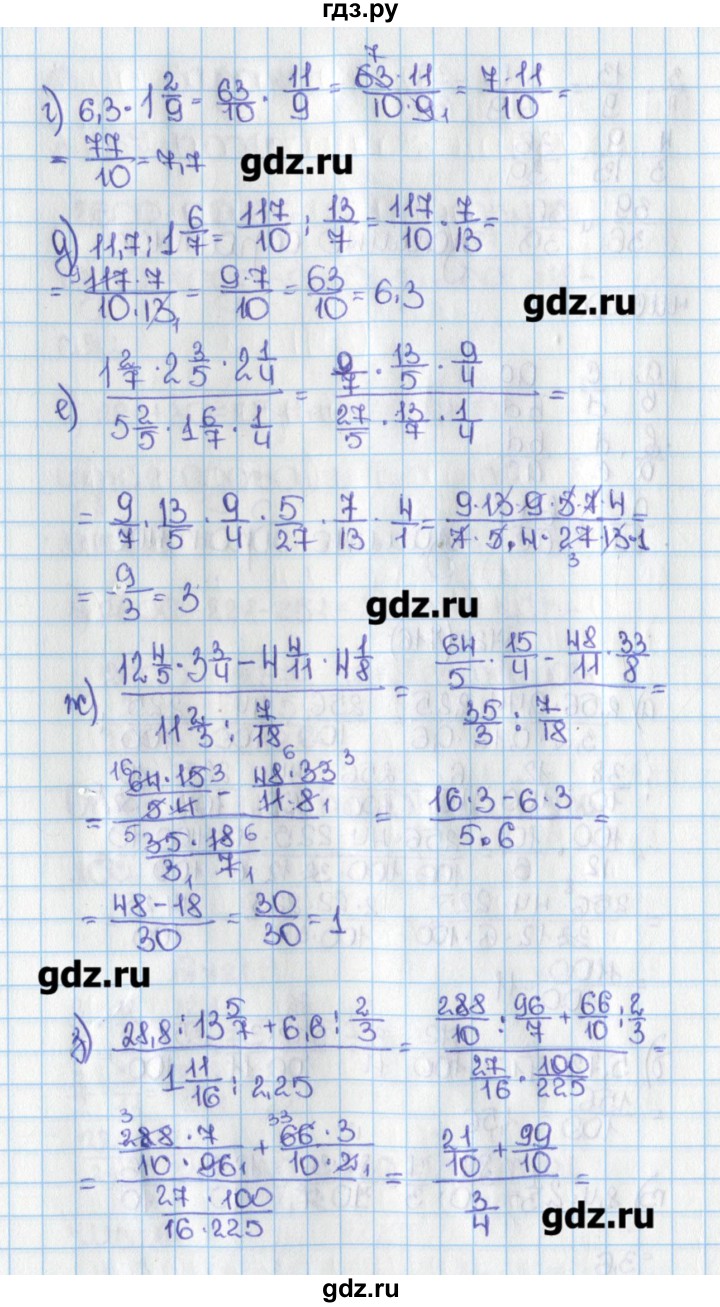 гдз.ру
г) 6,3 · 1 2/9 = 63/10 · 11/9 = 63·11/10·9 = 7·11/10 =
7
1
= 77/10 = 7,7
gdz.ru
д) 11,7 : 1 6/7 = 117/10 : 13/7 = 117/10 · 7/13 =
9
= 117·7/10·13 = 9·7/10 = 63/10 = 6,3
1
gdz.ru
е) 1 2/7 · 2 3/5 · 2 1/4 / 5 2/5 · 1 6/7 · 1/4 = 9/7 · 13/5 · 9/4 / 27/5 · 13/7 · 1/4 =
= 9/7 · 13/5 · 9/4 · 5/27 · 7/13 · 4/1 = 9·13·9·5·7·4/7·5·4·27·13·1 =
3
= 9/3 = 3
gdz.ru
ж) 12 4/5 · 3 3/4 − 4 4/11 · 4 1/8 / 11 2/3 : 7/18 = 64/5 · 15/4 − 48/11 · 33/8 / 35/3 : 7/18 =
16 3 6 3
= 64·15/5·4 − 48·33/11·8 / 35·18/3·7 = 16·3−6·3/5·6 =
1
5 6
1 1
= 48−18/30 = 30/30 = 1
gdz.ru
з) 28,8 : 13 5/7 + 6,6 : 2/3 / 1 11/16 : 2,25 = 288/10 : 96/7 + 66/10 : 2/3 / 27/16 · 100/225 =
3 33
= 288·7/10·96 + 66·3/10·2 / 27·100/16·225 = 21/10 + 99/10 / 3/4 =
1 1
gdz.ru
gdz.ru